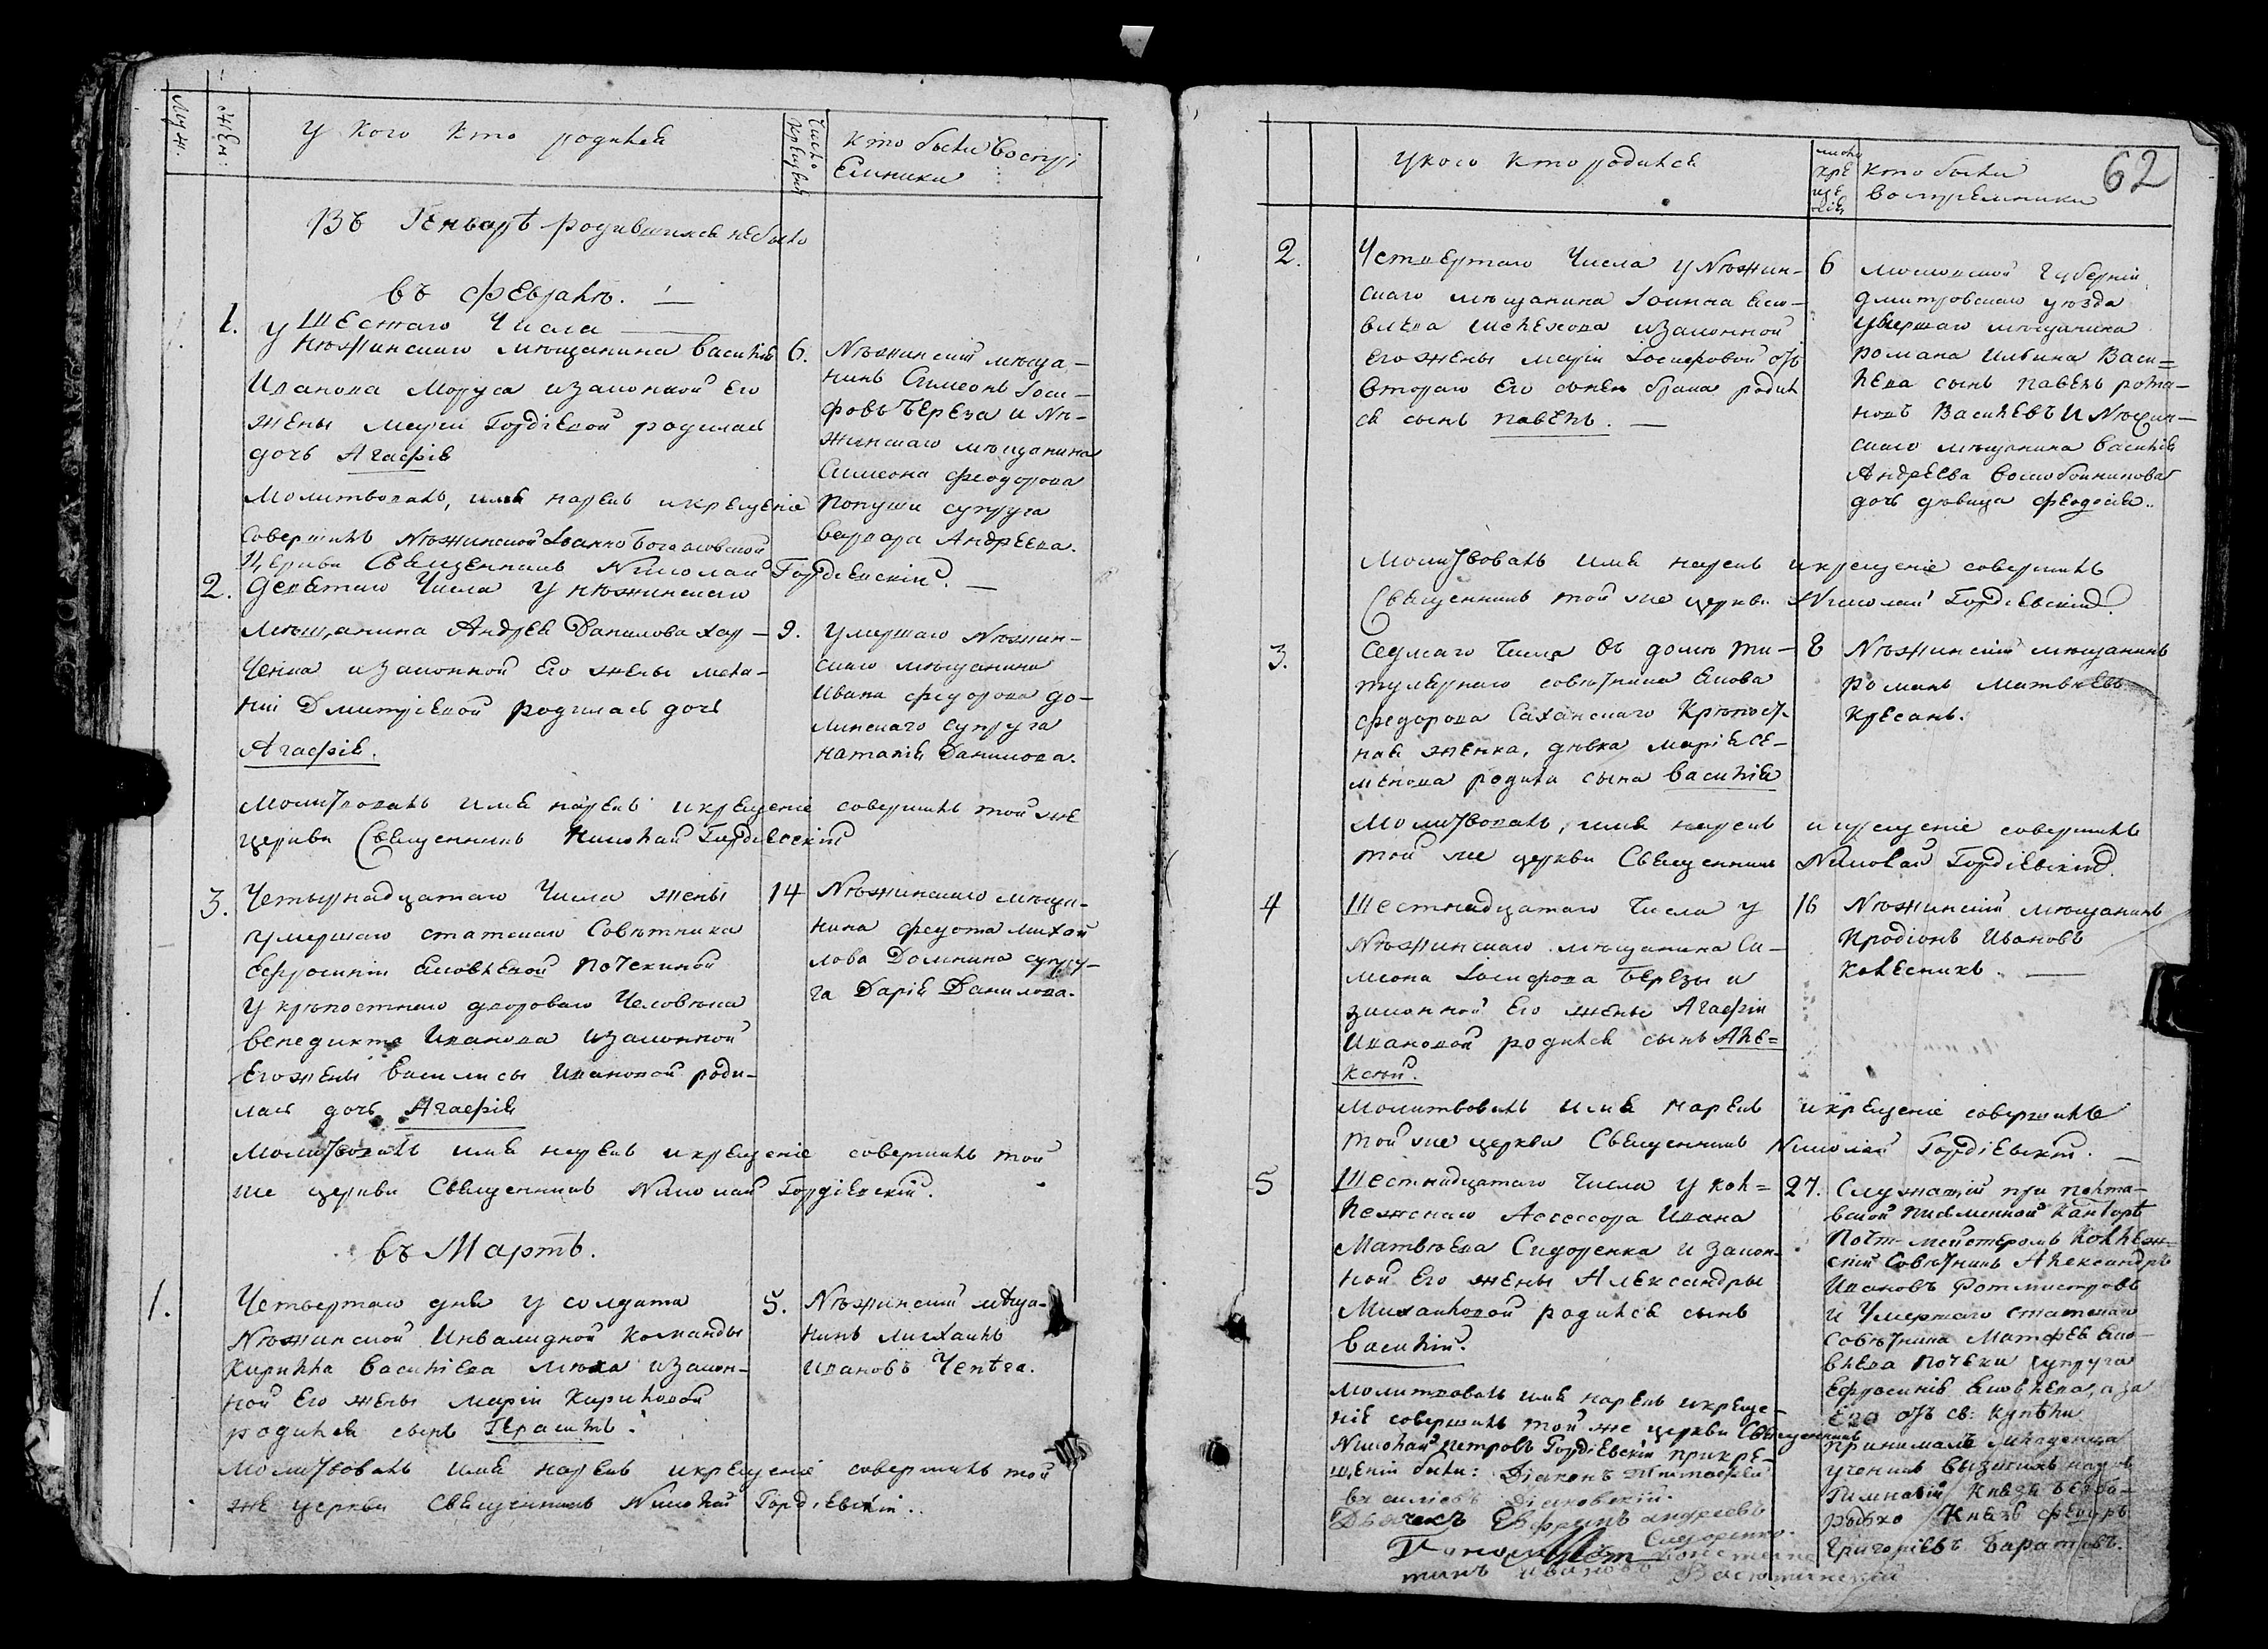 Муж.
Жен:
У кого кто родился
Число Крещения
Кто были воспрі
емники
Въ Генварѣ родившихся небыло
въ Февралѣ.
1.
Шестаго Числа
У Нѣжинскаго мѣщанина Василія
Иванова Моруса изаконной Его
жены Марӏи Гордіевой родилась
дочь Агафія
6.
Нѣжинскій мѣща-
нинъ Симеонъ Іоси-
фовъ Береза и Нѣ-
жинскаго мѣщанина
Симеона Феодорова
Попуши супруга
Варвара Андреева.
Молитвовалъ, имя нарекъ икрещеніе
совершилъ Нѣжинской Іоанно Богословской
Церкви Священникъ Николай Гордіевскій.
2.
Девятаго Числа у нѣжинскаго
мѣщанина Андрея Данилова Хар-
ченка изаконной Его жены Мела-
ніи Дмитріевой родилась дочь
Агафія.
9.
умершаго Нѣжин-
скаго мѣщанина
Ивана Федорова До-
линскаго супруга
Наталія Данилова.
Молитвовалъ имя нарекъ икрещеніе совершилъ той же
церкви Священникъ Николай Гордіевскій
3.
Четырнадцатаго Числа жены
умершаго статскаго Совѣтника
Ефросиніи Яковлевой Почекиной
у крѣпостнаго двороваго Человѣка
Венедикта Иванова изаконной
Его жены Василисы Ивановой роди-
лась дочь Агафія
14
Нѣжинскаго мѣща-
нина Федота Михай
лова Долинина супру-
га Дарія Данилова.
Молитвовалъ имя нарекъ икрещеніе совершилъ той
же церкви Священникъ Николай Гордіевскій.
въ Мартѣ.
1.
Четвертаго дня у солдата
Нѣжинской Инвалидной Команды
Кирилла Василіева изакон-
ной Его жены Маріи Кириловой
родился сынъ Герасимъ.
5.
Нѣжинскій мѣща-
нинъ Михаилъ
Ивановъ
Молитвовалъ имя нарекъ икрещеніе совершилъ той
же церкви Священникъ Николай Гордіевскій.
укого кто родился
число
кре
ще
нія
кто были
воспремники
62
2.
Четвертаго Числа у Нѣжин-
скаго мѣщанина Іоанна Яко-
влева изаконной
его жены Маріи Іосифовой отъ
втораго Его съ нею брака родил
ся сынъ Павелъ.
6
Московской Губерніи
Дмитровскаго уѣзда
умершаго мѣщанина
Романа Ильина Васи=
лева сынъ Павелъ Рома-
новъ Василевъ и Нѣжин-
скаго мѣщанина Василія
Андреева
дочь дѣвица Феодосія.
Молитвовалъ имя нарекъ икрещеніе совершилъ
Священникъ той же церкви Николай Гордіевскій.
3.
Седмаго Числа въ домѣ ти-
тулярнаго совѣтника Якова
Федорова Саханскаго Крѣпост-
ная женка, дѣвка Марія Се-
менова родила сына Василія
8
Нѣжинскій мѣщанинъ
Романъ Матвѣевъ
Кресанъ.
Молитвовалъ, имя нарекъ икрещеніе совершилъ
той же церкви Священникъ Николай Гордіевскій.
4
Шестнадцатаго Числа у
Нѣжинскаго мѣщанина Си-
меона Іосифова Березы и
законной Его жены Агафіи
Ивановой родился сынъ Але=
ксѣй.
16
Нѣжинскій мѣщанинъ
Иродіонъ Ивановъ
Колесникъ.
Молитвовалъ имя нарекъ икрещеніе совершилъ
той же церкви Священникъ Николай Гордіевскій.
5
Шестнадцатаго Числа у Кол=
лежскаго Ассессора Ивана
Матвѣева Сидоренка и закон-
ной Его жены Александры
Михайловой родился сынъ
Василій.
27.
Служащій при Полта-
вской Писменной Канторѣ
Почт-мейстеромъ Коллеж-
скій Совѣтникъ Александръ
Ивановъ Ротмистровъ
и Умершаго статскаго
Совѣтника Матфея Яко-
влева Почеки супруга
Ефросинія Яковлева, а за
Его отъ св: купѣли
принималъ младенца
ученикъ высшихъ наукъ
Гимназіи Князя Безбо-
родко Князь Федоръ
Григоріевъ Баратовъ.
Молитвовалъ имя нарекъ икреще-
ніе совершилъ той же церкви Священникъ
Николай Петровъ Гордіевскій прикре-
щеніи были: Діаконъ Тимофей
Василіевъ Діаковскій.
Дьячекъ Ефремъ Андреевъ
Сидоренко.
Пономарь Констан
тинъ Ивановъ